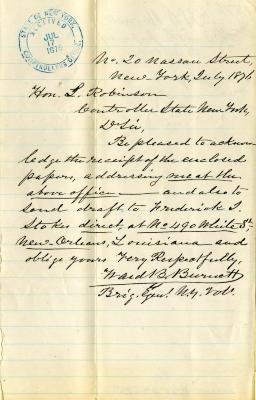 STATE OF NEW YORK
RECEIVED
JUL
1876
COMPTROLLER'S OFFICE
No. 20 Nassau Street,
New York, July 1876
Hon. L. Robinson
Controller State New York,
D Sir,
Be pleased to acknow-
ledge the receipt of the enclosed
papers, addressing me at the
above office — and also to
send draft to Frederick S.
Stokes direct, at No 490 White St.
New Orleans, Louisiana and
oblige yours Very Respectfully,
Ward B. Burnett
Brig. Genl. N.Y. Vol.